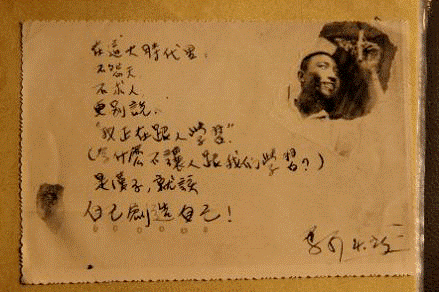 在這大時代里，
不怨天
不求人，
更別說，
“我正在跟人學習”
(為什麼不讓人跟我們學習？)
是漢子，就該
自己創造自己！